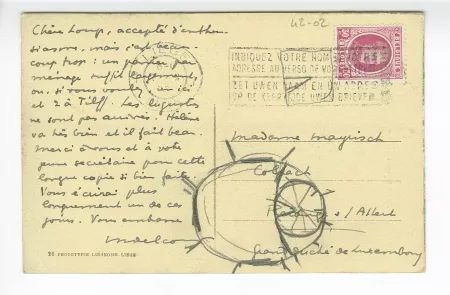 42-02
Chère Loup, accepté d'enthou-
siasme, mais c'est beau-
coup trop : un panier par
ménage suffit largement,
ou, si vous voulez, un ici
et 2 à Tilff. Les
ne sont pas arrivés. Hélène
va très bien et il fait beau.
Merci à vous et à votre
jeune secrétaire pour cette
longue copie si bien faite.
Vous écrirai plus
longuement un de ces
jours. Vous embrasse
INDIQUEZ VOTRE NOM
ADRESSE AU VERSO DE VOS
ZET UWEN NAAM EN UW ADRES
OP DE KEERZIJDE UWER BRIEVEN
Madame Mayrisch
Colpach
Grand Duché de Luxembourg